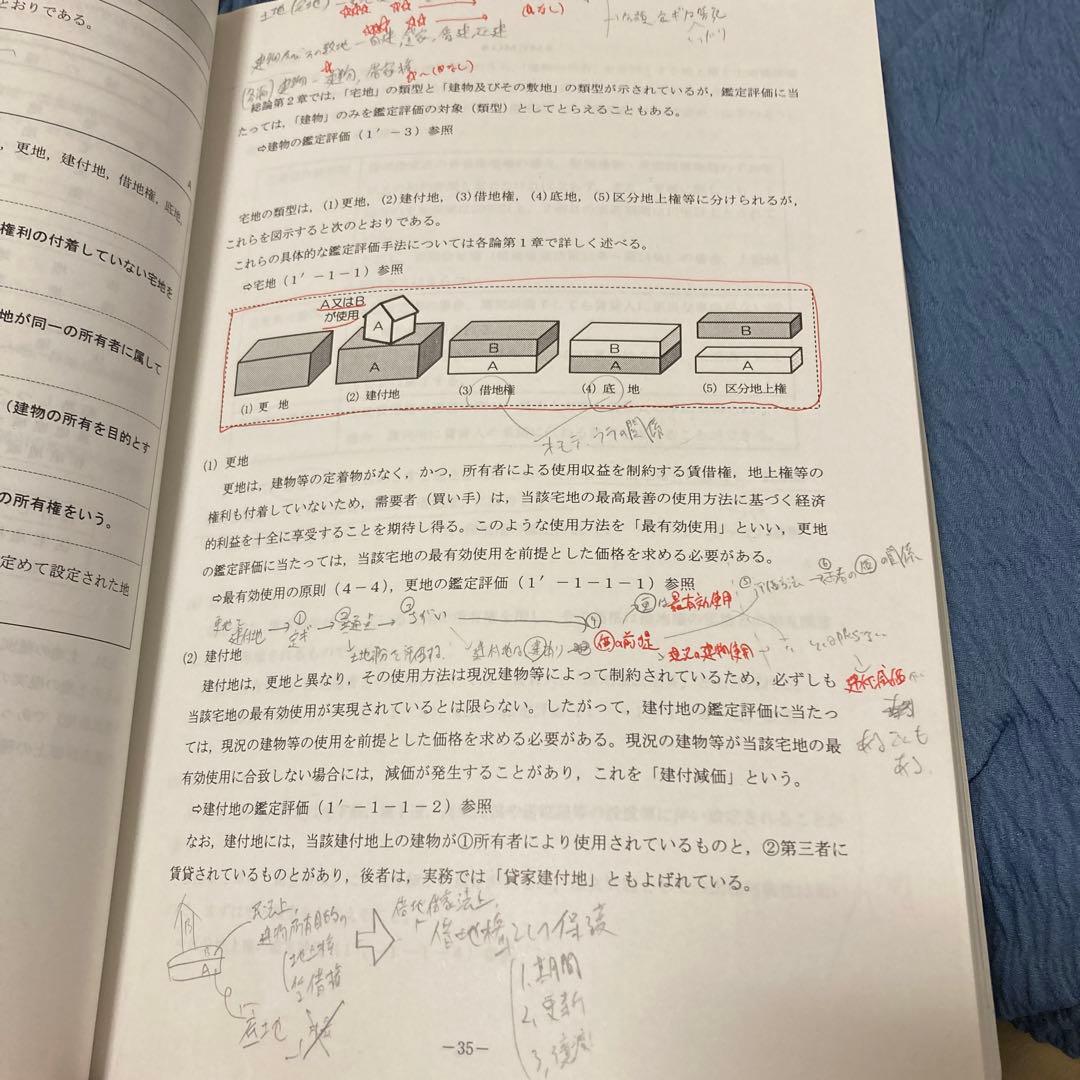 とおりである。
，更地，建付地，借地権，底地，
権利の付着していない宅地を
地が同一の所有者に属して
（建物の所有を目的とす
の所有権をいう。
定めて設定された地
総論第２章では，「宅地」の類型と「建物及びその敷地」の類型が示されているが，鑑定評価に当
たっては，「建物」のみを鑑定評価の対象（類型）としてとらえることもある。
⇨建物の鑑定評価（１′－３）参照
宅地の類型は，(1)更地，(2)建付地，(3)借地権，(4)底地，(5)区分地上権等に分けられるが，
これらを図示すると次のとおりである。
これらの具体的な鑑定評価手法については各論第１章で詳しく述べる。
⇨宅地（１′－１－１）参照
A又はB
が使用
A
A
B
A
B
A
B
A
(1) 更　地
(2) 建付地
(3) 借地権
(4) 底　地
(5) 区分地上権
オモテ，ウラの関係
(1) 更地
更地は，建物等の定着物がなく，かつ，所有者による使用収益を制約する賃借権，地上権等の
権利も付着していないため，需要者（買い手）は，当該宅地の最高最善の使用方法に基づく経済
的利益を十全に享受することを期待し得る。このような使用方法を「最有効使用」といい，更地
の鑑定評価に当たっては，当該宅地の最有効使用を前提とした価格を求める必要がある。
⇨最有効使用の原則（４－４），更地の鑑定評価（１′－１－１－１）参照
は最有効使用
の前提
現況の建物使用
(2) 建付地
建付地は，更地と異なり，その使用方法は現況建物等によって制約されているため，必ずしも
建付減価
当該宅地の最有効使用が実現されているとは限らない。したがって，建付地の鑑定評価に当たっ
ては，現況の建物等の使用を前提とした価格を求める必要がある。現況の建物等が当該宅地の最
あることも
ある。
有効使用に合致しない場合には，減価が発生することがあり，これを「建付減価」という。
⇨建付地の鑑定評価（１′－１－１－２）参照
なお，建付地には，当該建付地上の建物が①所有者により使用されているものと，②第三者に
賃貸されているものとがあり，後者は，実務では「貸家建付地」ともよばれている。
B
A
民法上，
建物所有目的の
地上権
賃借権
底地
借地借家法上，
借地権として保護
1. 期間
2. 更新
3. 譲渡
－35－